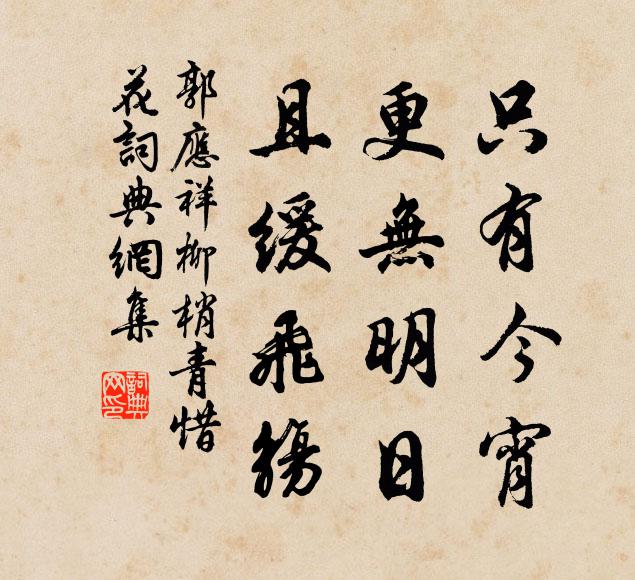 只有今宵
更無明日
且緩飛觴
郭應祥柳梢青惜
花詞典網集
詞典網印